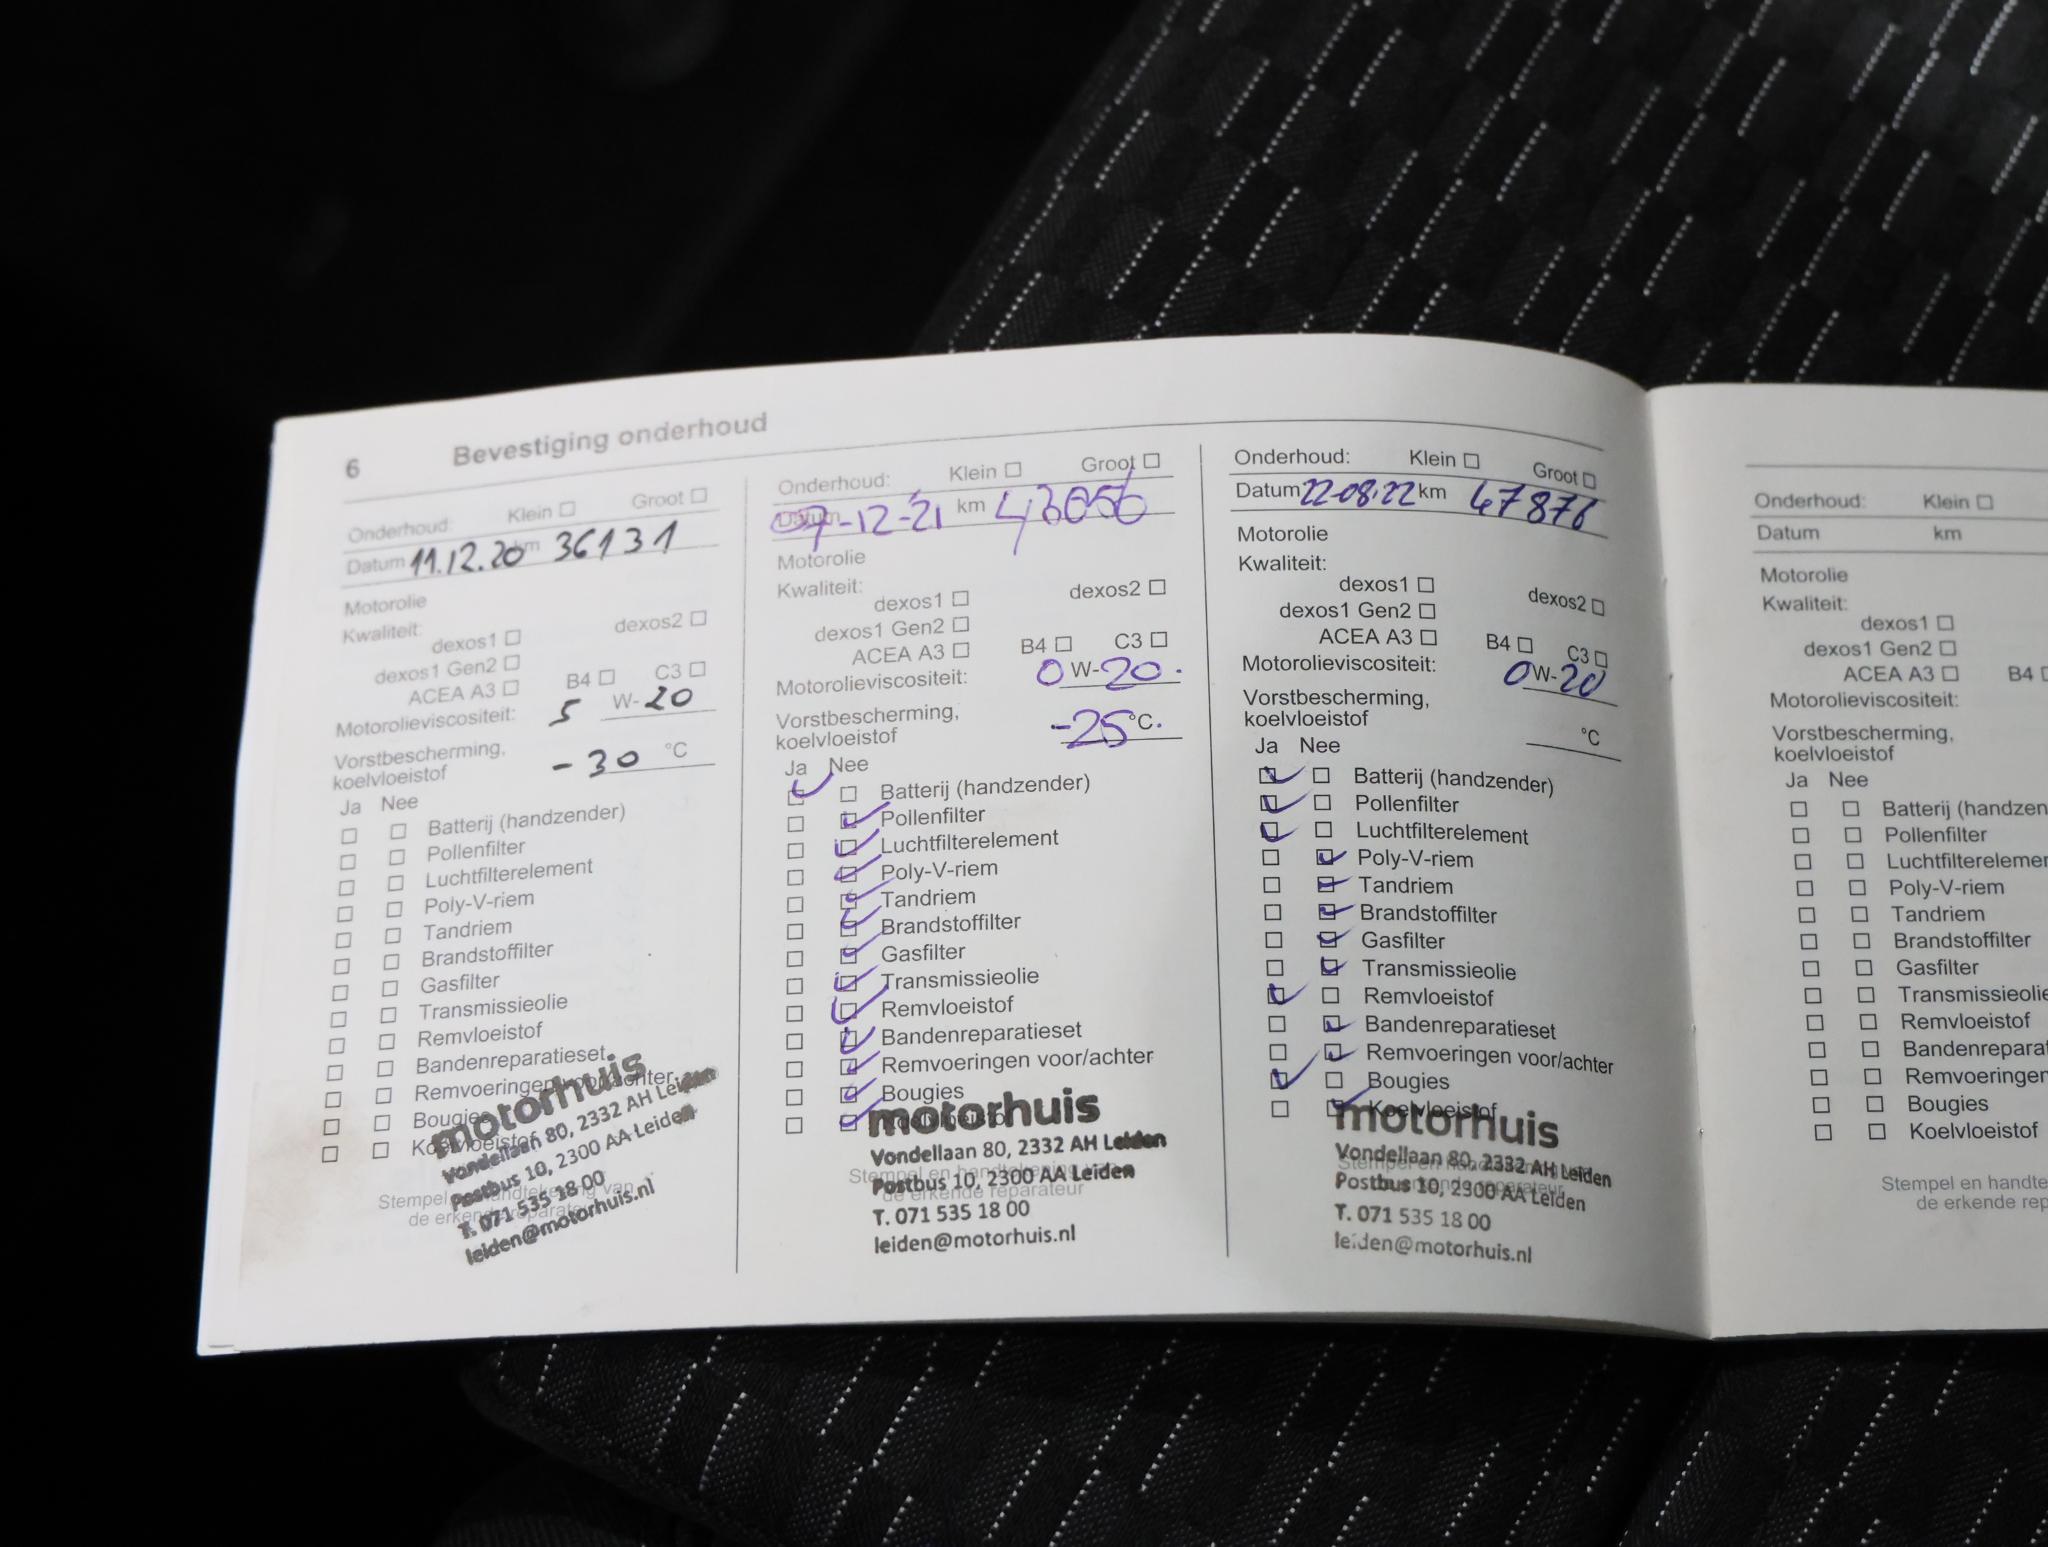 6 Bevestiging onderhoud
Onderhoud: Klein Groot
Datum 11.12.20 km 36131
Motorolie
Kwaliteit:
dexos1 dexos2
dexos1 Gen2
ACEA A3 B4 C3
Motorolieviscositeit: 5 W-20
Vorstbescherming,
koelvloeistof -30 °C
Ja Nee
Batterij (handzender)
Pollenfilter
Luchtfilterelement
Poly-V-riem
Tandriem
Brandstoffilter
Gasfilter
Transmissieolie
Remvloeistof
Bandenreparatieset
Remvoeringen voor/achter
Bougies
Koelvloeistof
motorhuis
Vondellaan 80, 2332 AH Leiden
Postbus 10, 2300 AA Leiden
T. 071 535 18 00
leiden@motorhuis.nl
Stempel en handtekening van
de erkende reparateur
Onderhoud: Klein Groot
Datum 07-12-21 km
Motorolie
Kwaliteit:
dexos1 dexos2
dexos1 Gen2
ACEA A3 B4 C3
Motorolieviscositeit: 0 W-20.
Vorstbescherming,
koelvloeistof -25 °C.
Ja Nee
Batterij (handzender)
Pollenfilter
Luchtfilterelement
Poly-V-riem
Tandriem
Brandstoffilter
Gasfilter
Transmissieolie
Remvloeistof
Bandenreparatieset
Remvoeringen voor/achter
Bougies
Koelvloeistof
motorhuis
Vondellaan 80, 2332 AH Leiden
Postbus 10, 2300 AA Leiden
T. 071 535 18 00
leiden@motorhuis.nl
Stempel en handtekening van
de erkende reparateur
Onderhoud: Klein Groot
Datum 22-08-22 km 47876
Motorolie
Kwaliteit:
dexos1 dexos2
dexos1 Gen2
ACEA A3 B4 C3
Motorolieviscositeit: 0 W-20
Vorstbescherming,
koelvloeistof °C
Ja Nee
Batterij (handzender)
Pollenfilter
Luchtfilterelement
Poly-V-riem
Tandriem
Brandstoffilter
Gasfilter
Transmissieolie
Remvloeistof
Bandenreparatieset
Remvoeringen voor/achter
Bougies
Koelvloeistof
motorhuis
Vondellaan 80, 2332 AH Leiden
Postbus 10, 2300 AA Leiden
T. 071 535 18 00
leiden@motorhuis.nl
Stempel en handtekening van
de erkende reparateur
Onderhoud: Klein
Datum km
Motorolie
Kwaliteit:
dexos1
dexos1 Gen2
ACEA A3 B4
Motorolieviscositeit:
Vorstbescherming,
koelvloeistof
Ja Nee
Batterij (handzen
Pollenfilter
Luchtfilterelemen
Poly-V-riem
Tandriem
Brandstoffilter
Gasfilter
Transmissieolie
Remvloeistof
Bandenreparat
Remvoeringen
Bougies
Koelvloeistof
Stempel en handte
de erkende rep